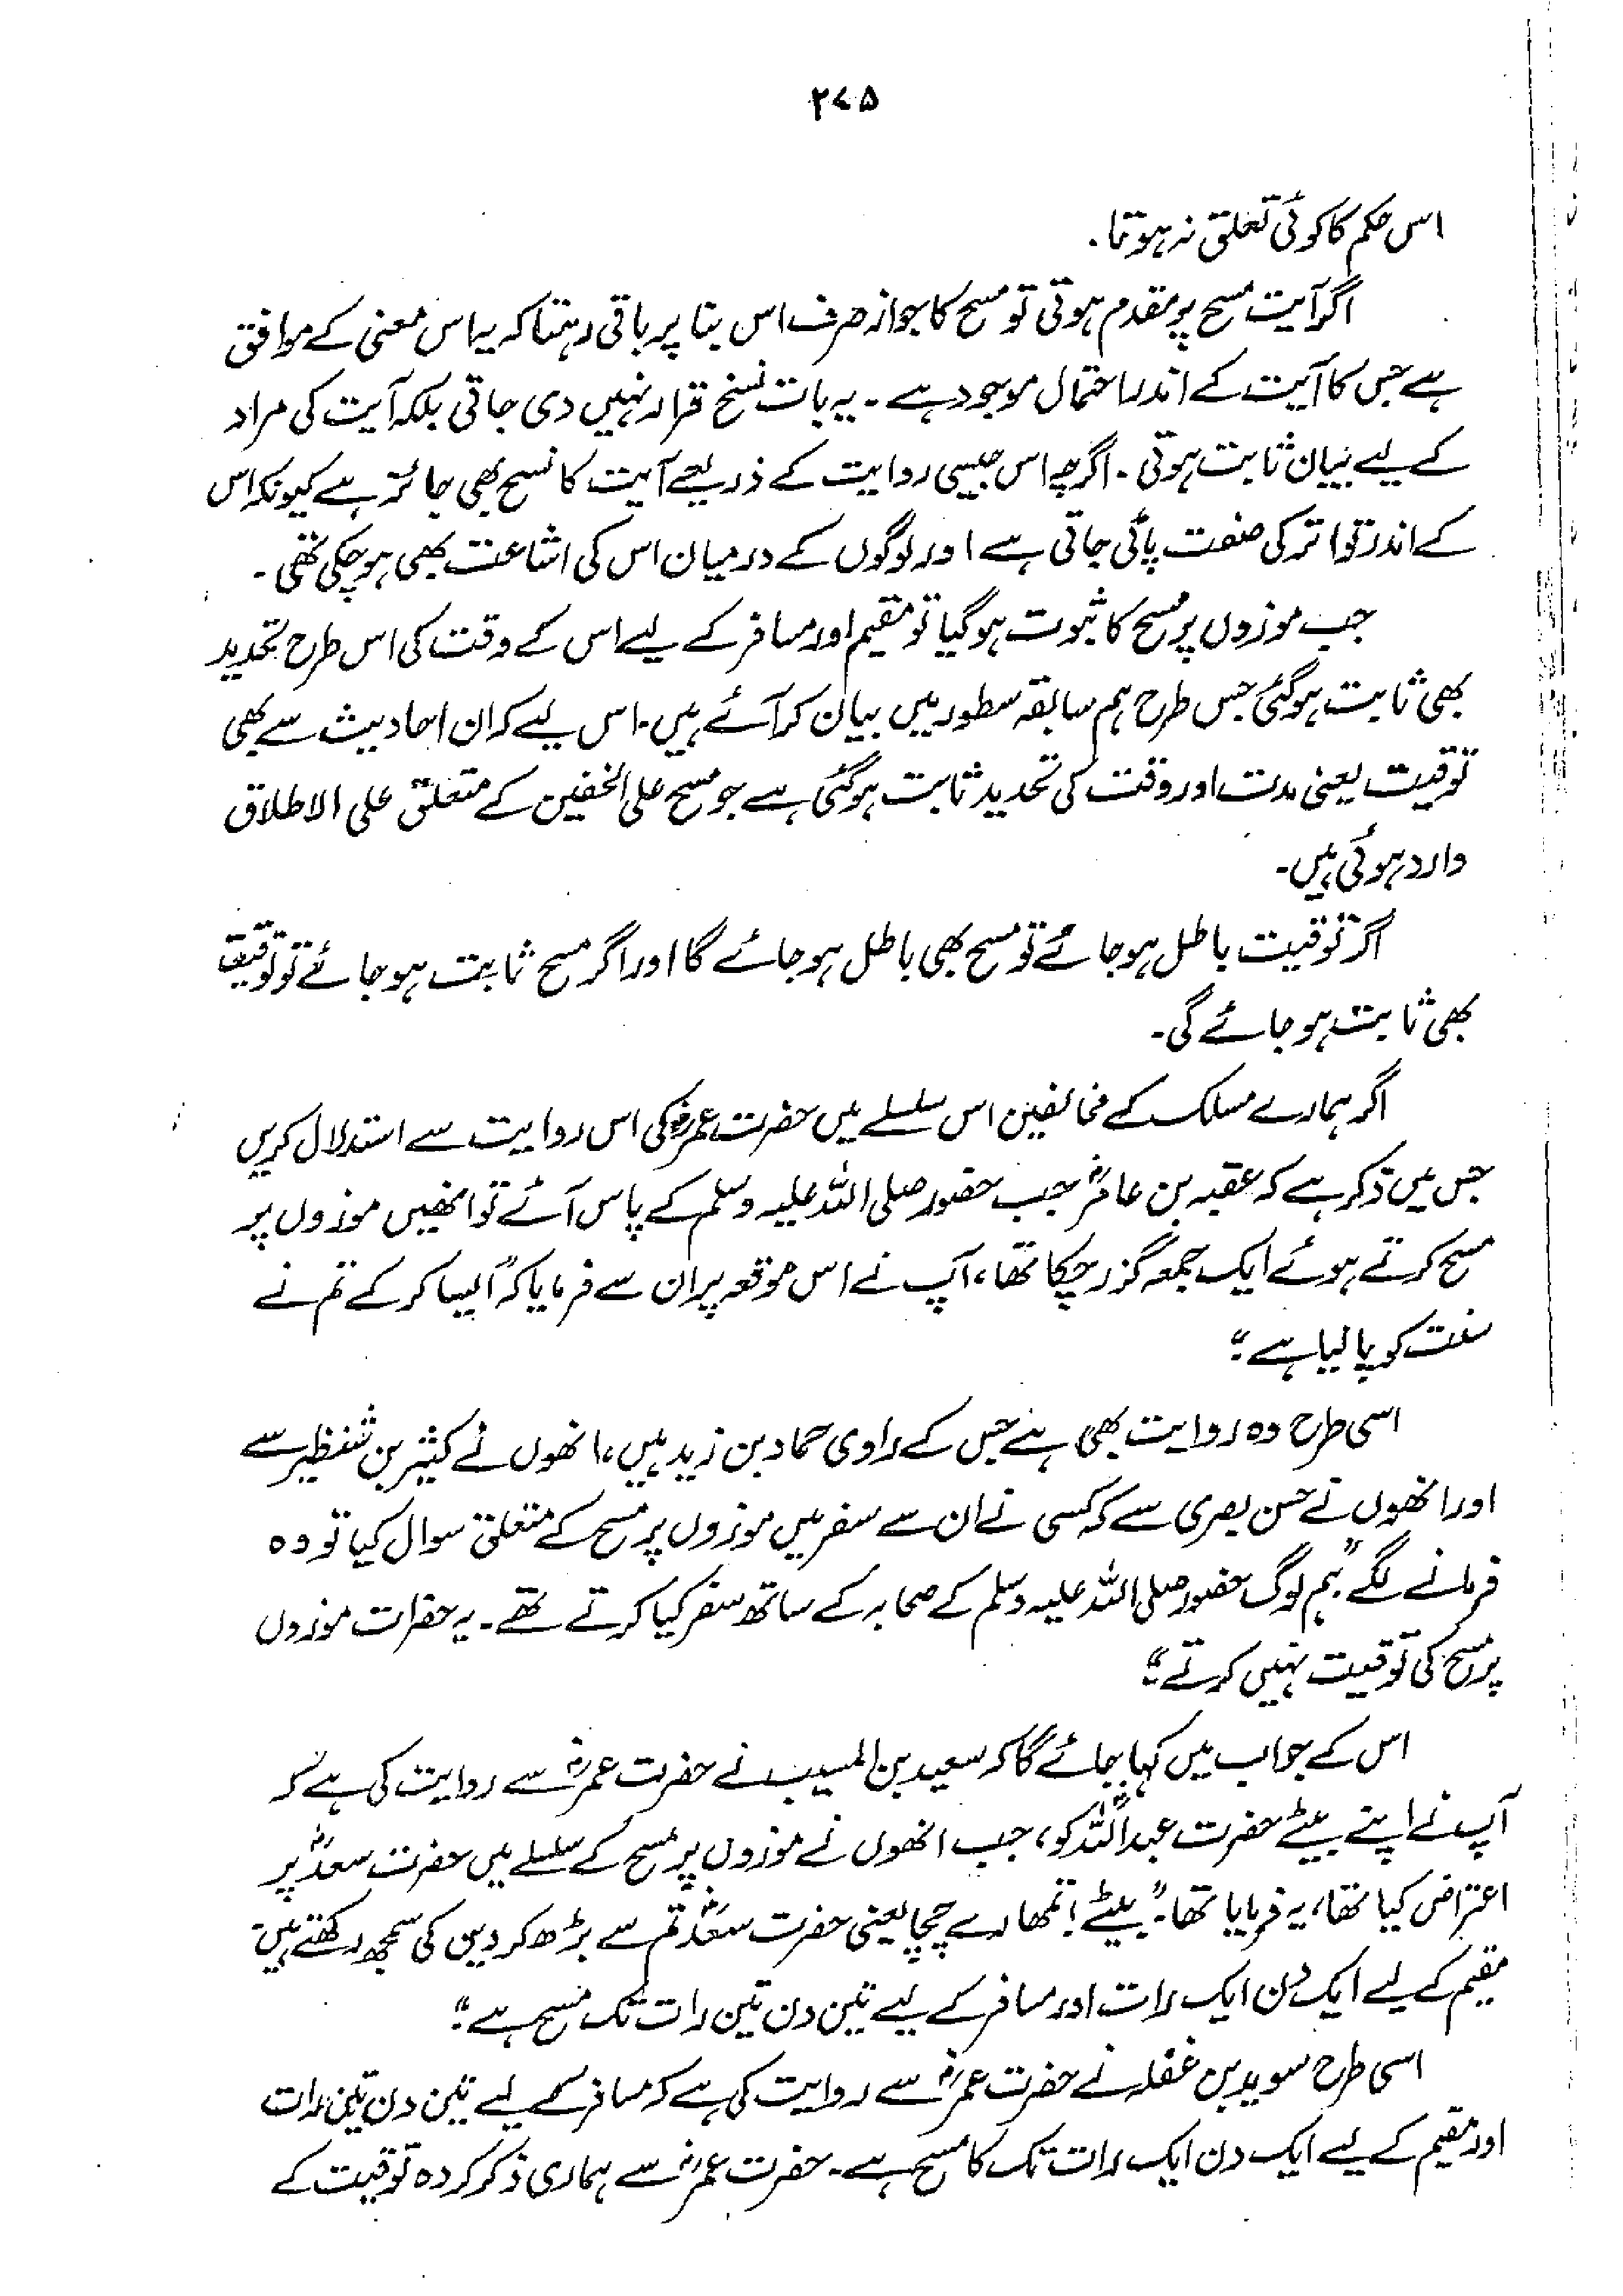 ۲۷۵
اس حکم کا کوئی تعلق نہ ہوتا۔
اگر آیت مسح پر مقدم ہوتی تو مسح کا جواز صرف اس بنا پر باقی رہتا کہ یہ اس معنی کے موافق
ہے جس کا آیت کے اندر احتمال موجود ہے۔ یہ بات نسخ قرار نہیں دی جاتی بلکہ آیت کی مراد
کے لیے بیان ثابت ہوتی۔ اگرچہ اس جیسی روایت کے ذریعے آیت کا نسخ بھی جائز ہے کیونکہ اس
کے اندر تواتر کی صفت پائی جاتی ہے اور لوگوں کے درمیان اس کی اشاعت بھی ہو چکی تھی۔
جب موزوں پر مسح کا ثبوت ہوگیا تو مقیم اور مسافر کے لیے اس کے وقت کی اس طرح تحدید
بھی ثابت ہوگئی جس طرح ہم سابقہ سطور میں بیان کر آئے ہیں۔ اس لیے کہ ان احادیث سے بھی
توقیت یعنی مدت اور وقت کی تحدید ثابت ہوگئی ہے جو مسح علی الخفین کے متعلق علی الاطلاق
وارد ہوئی ہیں۔
اگر توقیت باطل ہو جائے تو مسح بھی باطل ہو جائے گا اور اگر مسح ثابت ہو جائے تو توقیت
بھی ثابت ہو جائے گی۔
اگر ہمارے مسلک کے مخالفین اس سلسلے میں حضرت عمرؓ کی اس روایت سے استدلال کریں
جس میں ذکر ہے کہ عقبہ بن عامرؓ جب حضور صلی اللہ علیہ وسلم کے پاس آئے تو انھیں موزوں پر
مسح کرتے ہوئے ایک جمعہ گزر چکا تھا، آپ نے اس موقعہ پر ان سے فرمایا کہ "ایسا کر کے تم نے
سنت کو پا لیا ہے"۔
اسی طرح وہ روایت بھی ہے جس کے راوی حماد بن زید ہیں، انھوں نے کثیر بن شنظیر سے
اور انھوں نے حسن بصری سے کہ کسی نے ان سے سفر میں موزوں پر مسح کے متعلق سوال کیا تو وہ
فرمانے لگے "ہم لوگ حضور صلی اللہ علیہ وسلم کے صحابہ کے ساتھ سفر کیا کرتے تھے۔ یہ حضرات موزوں
پر مسح کی توقیت نہیں کرتے"۔
اس کے جواب میں کہا جائے گا کہ سعید بن المسیب نے حضرت عمرؓ سے روایت کی ہے کہ
آپ نے اپنے بیٹے حضرت عبداللہؓ کو، جب انھوں نے موزوں پر مسح کے سلسلے میں حضرت سعدؓ پر
اعتراض کیا تھا، یہ فرمایا تھا۔ "بیٹے! تمھارے چچا یعنی حضرت سعدؓ تم سے بڑھ کر دین کی سمجھ رکھتے ہیں
مقیم کے لیے ایک دن ایک رات اور مسافر کے لیے تین دن تین رات تک مسح ہے"۔
اسی طرح سوید بن غفلہ نے حضرت عمرؓ سے روایت کی ہے کہ مسافر کے لیے تین دن تین رات
اور مقیم کے لیے ایک دن ایک رات تک کا مسح ہے۔ حضرت عمرؓ سے ہماری ذکر کردہ توقیت کے